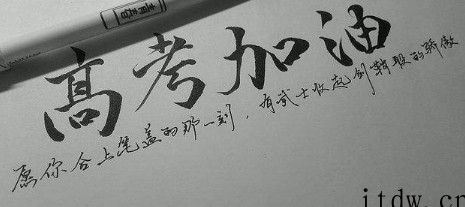 青春
高考加油
愿你合上笔盖的那一刻,有武士收起剑鞘般的骄傲
itdw.cn